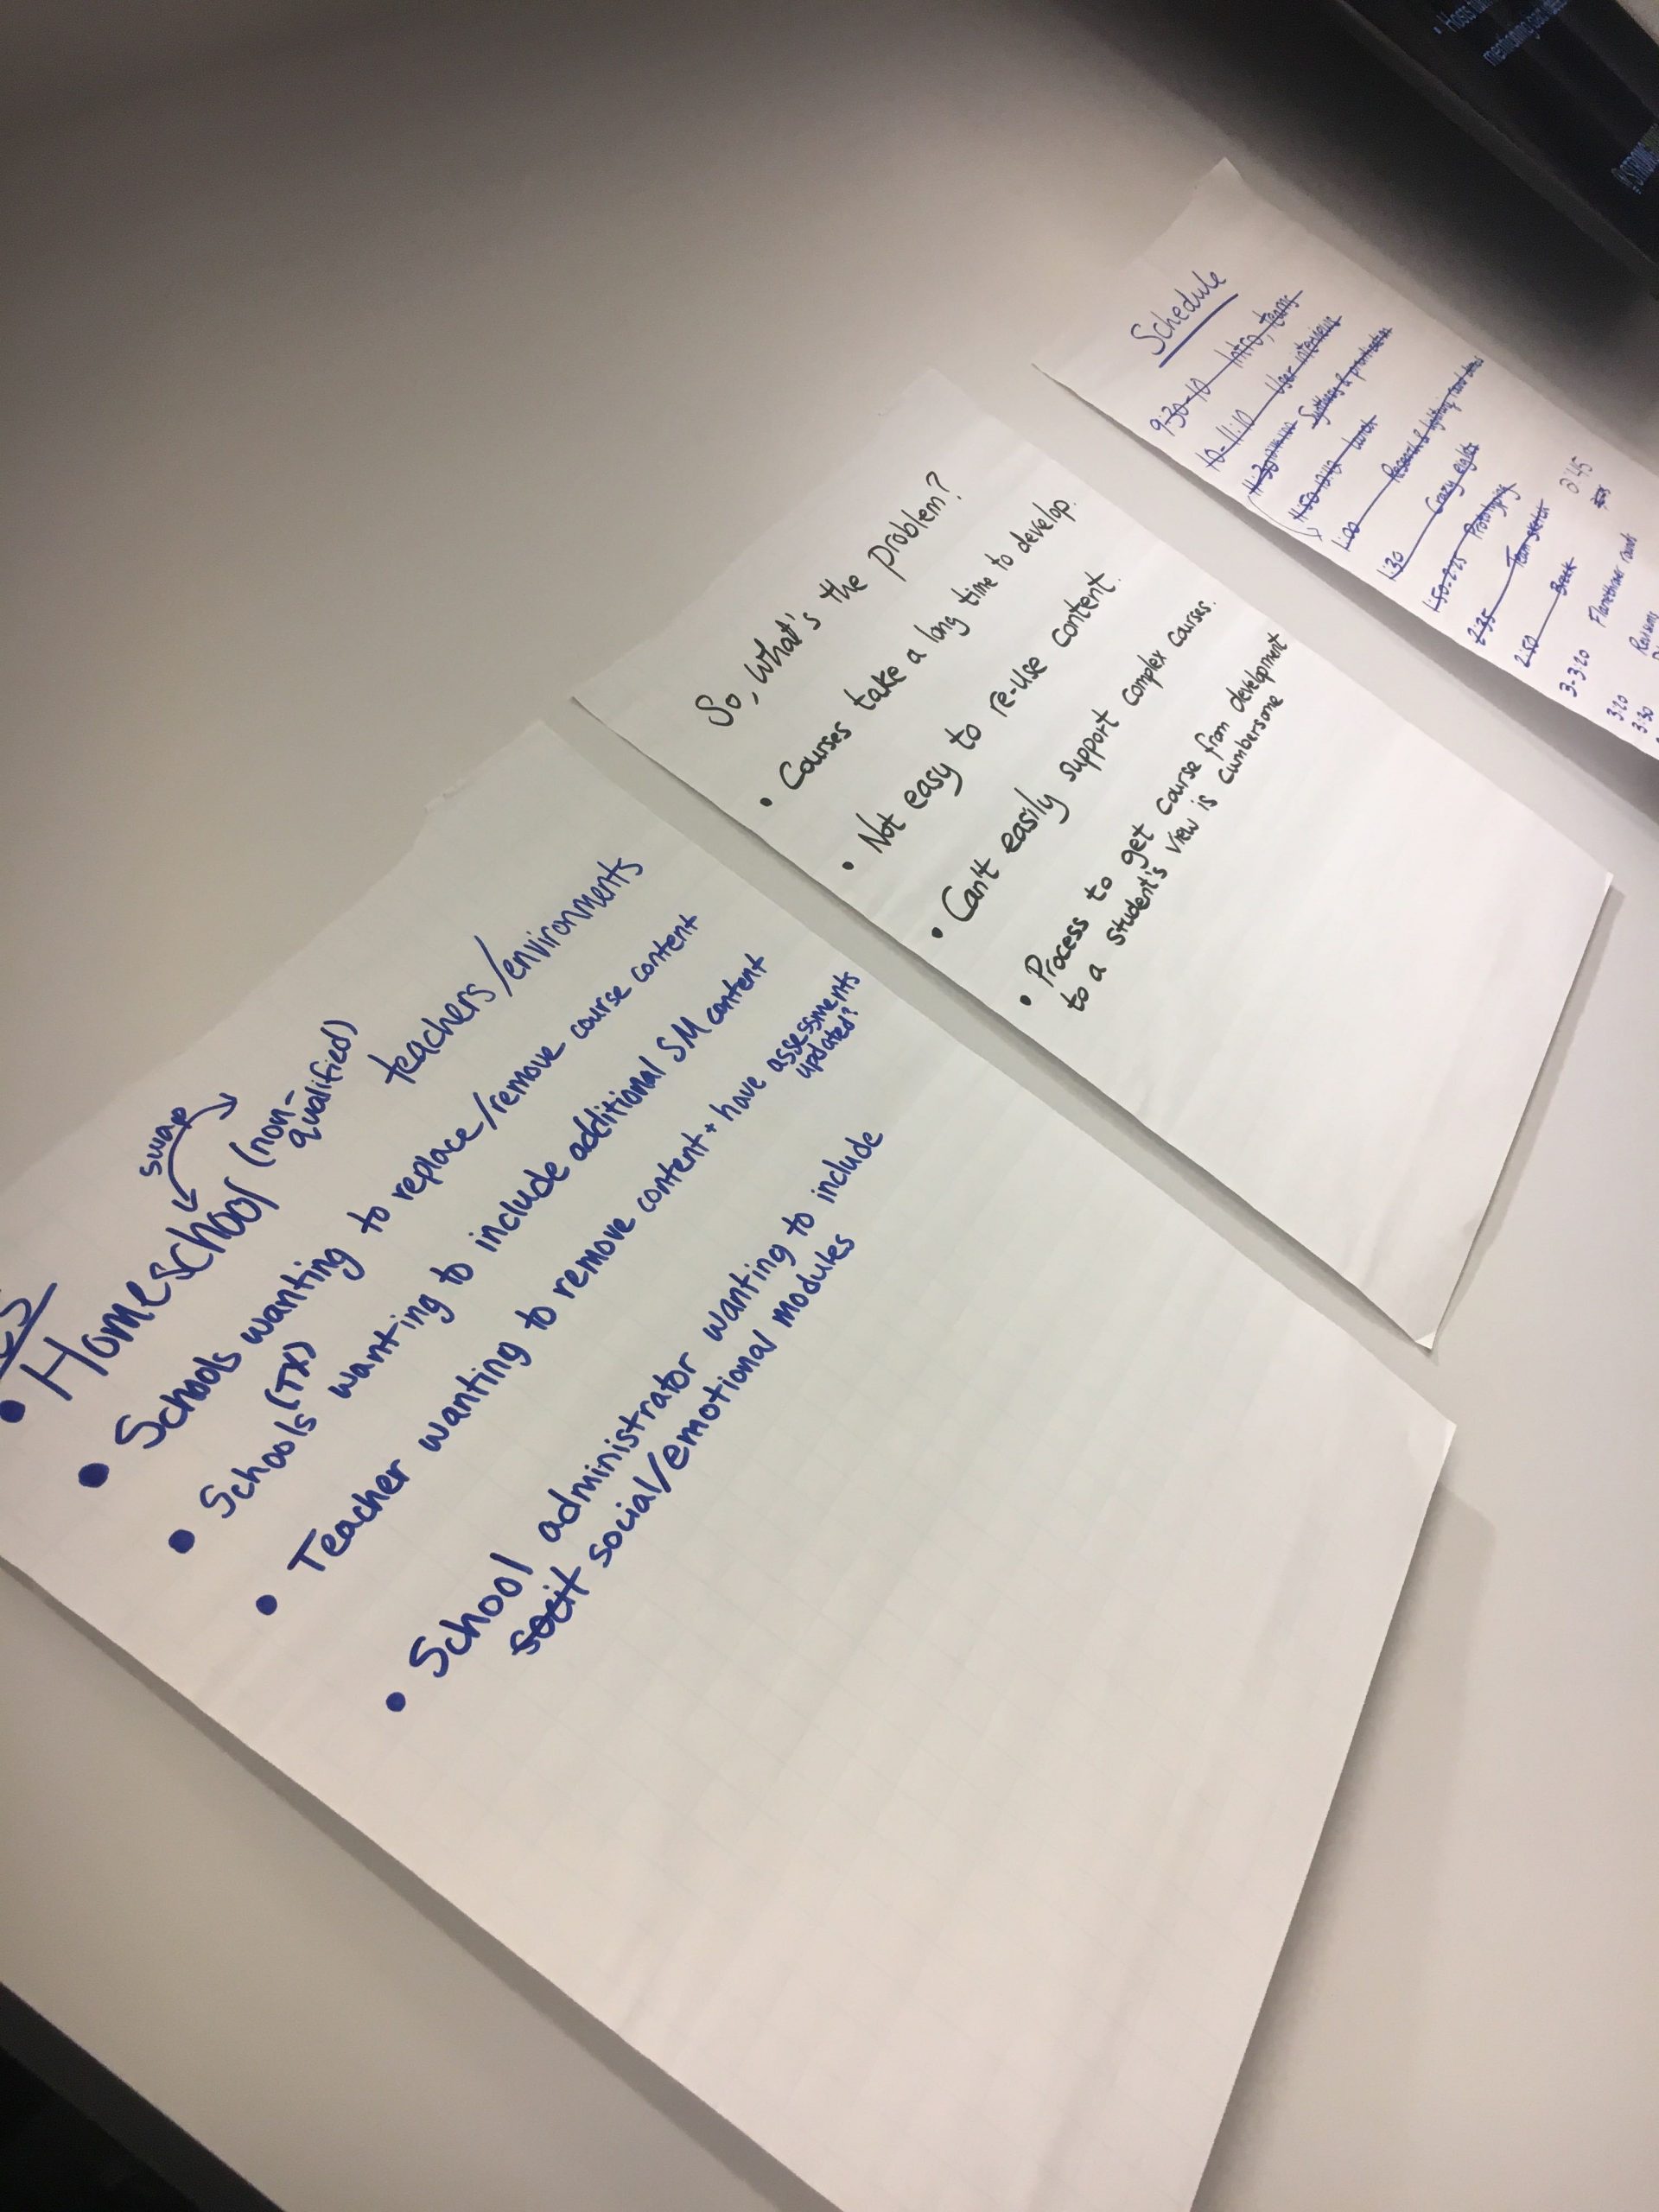 swap
• Homeschool (non-
qualified) teachers/environments
• Schools wanting to replace/remove course content
• Schools (TX) wanting to include additional SM content
• Teacher wanting to remove content + have assessments
updated?
• School administrator wanting to include
social/emotional modules
So, What's the problem?
• Courses take a long time to develop.
• Not easy to re-use content.
• Can't easily support complex courses.
• Process to get course from development
to a student's view is cumbersome
Schedule
9:30-10 Intro, teams
10-11:10 User interviews
11:30 Synthesis & prioritization
11:50 Lunch
1:00 Research & lightning
1:30 Crazy eights
1:50-2:25 Prototyping
2:35 Team
2:50 Break
3-3:20 Flamethrower rounds
3:20 Revisions
3:30